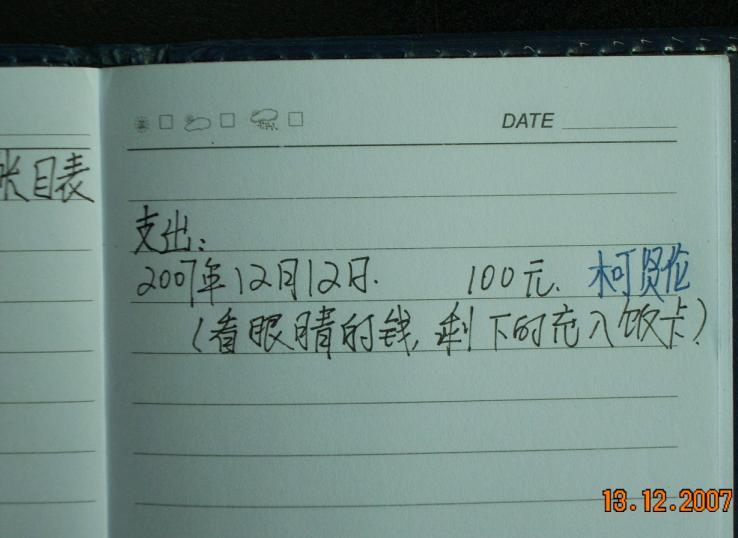 DATE
帐目表
支出:
2007年12月12日. 100元. 柯贤伦
(看眼睛的钱, 剩下的充入饭卡)
13.12.2007